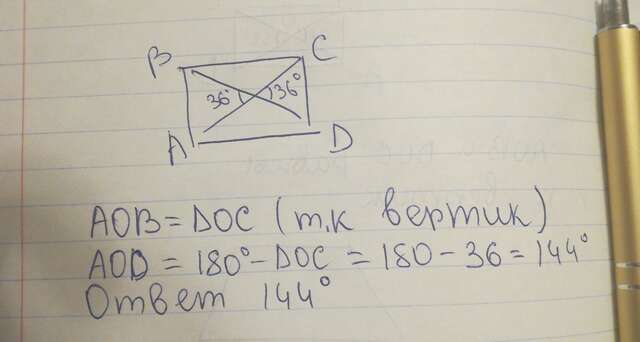 B C
36° 36°
A D
AOB = DOC (т.к вертик)
AOD = 180° - DOC = 180 - 36 = 144°
Ответ 144°